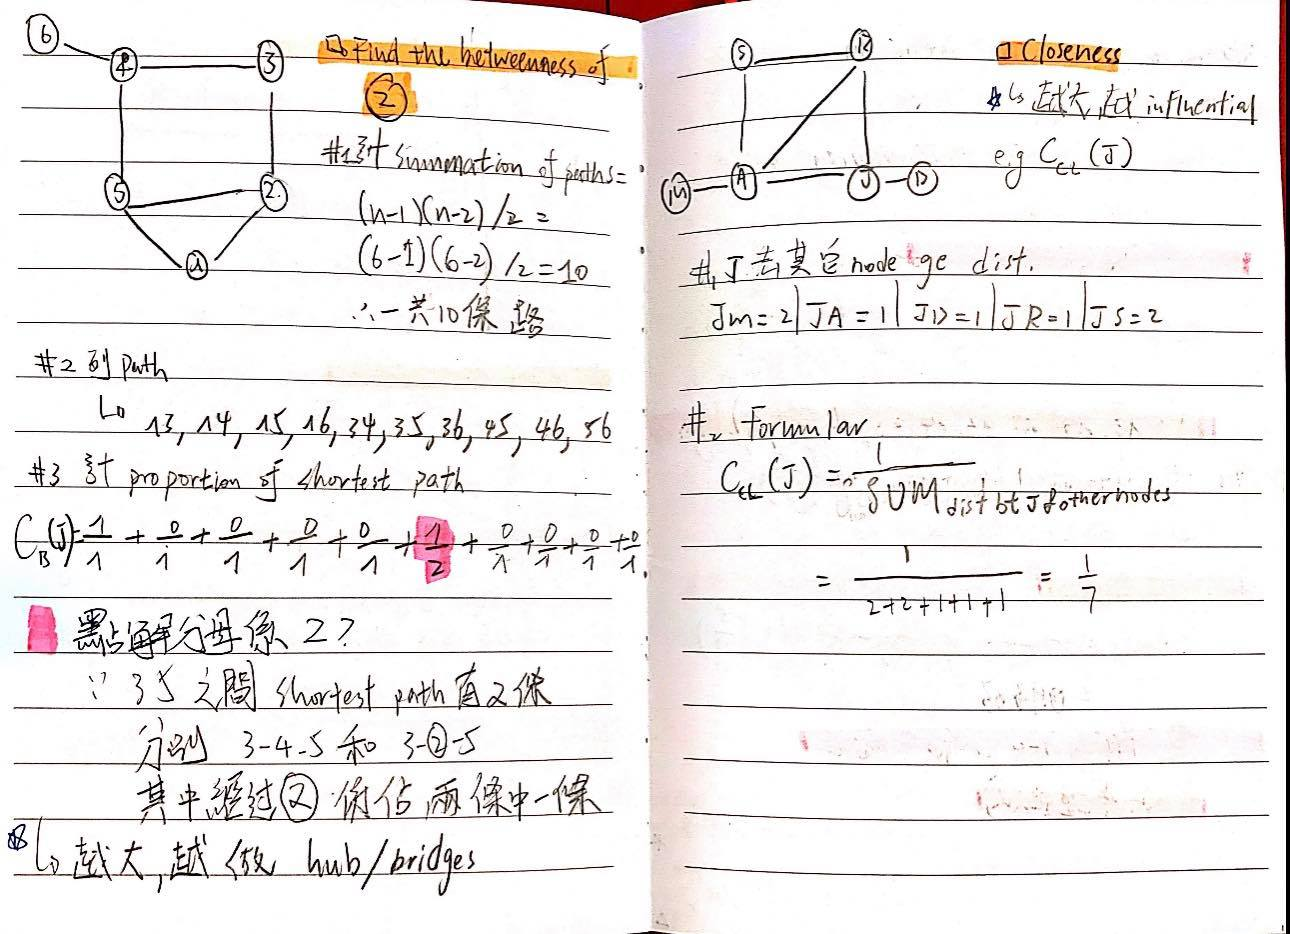 6
4
3
5
2.
1
□ Find the betweenness of
②
#1 計 summation of paths =
(n-1)(n-2)/2 =
(6-1)(6-2)/2=10
∴一共10條路
#2 列 path
↳ 13, 14, 15, 16, 34, 35, 36, 45, 46, 56
#3 計 proportion of shortest path
C_B(J) = 1/1 + 0/1 + 0/1 + 0/1 + 0/1 + 1/2 + 0/1 + 0/1 + 0/1 + 0/1
點解分母係 2?
∵ 35 之間 shortest path 有2條
分別 3-4-5 和 3-②-5
其中經过② 佔兩條中一條
↳ 越大,越 hub/bridges
S
R
M
A
J
D
□ Closeness
↳ 越大,越 influential
e.g C_CL(J)
#1 J去其它node ge dist.
JM=2|JA=1|JD=1|JR=1|JS=2
#2 Formular
C_CL(J) = 1/SUM dist bt J & other nodes
= 1/2+2+1+1+1 = 1/7